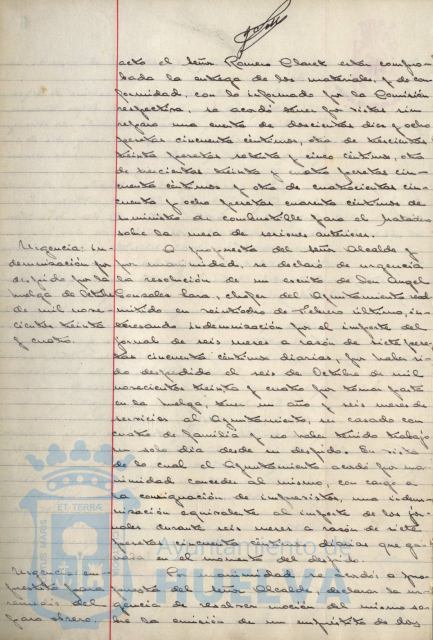 acto el señor Romero Claret esta compro-
bada la entrega de los materiales, y de con-
formidad, con lo informado por la Comisión
respectiva, se acordó tener por vistas sin
reparo una cuenta de doscientas diez y ocho
pesetas cincuenta céntimos, otra de trescientas
treinta pesetas setenta y cinco céntimos, otra
de trescientas treinta y cuatro pesetas cin-
cuenta céntimos y otra de cuatrocientas cin-
cuenta y ocho pesetas cuarenta céntimos de
suministro de combustible para el Matadero
sobre la mesa de sesiones anteriores.
Urgencia: in-
demnización por
despido por la
huelga de Octubre
de mil nove-
cientos treinta
y cuatro.
A propuesta del Señor Alcalde y
por unanimidad, se declaró de urgencia
la resolución de un escrito de Don Angel
Gonzalez Lara, chofer del Ayuntamiento read-
mitido en veintiocho de Febrero último, in-
teresando indemnización por el importe del
jornal de seis meses a razón de siete pese-
tas cincuenta céntimos diarias, por haber si-
do despedido el seis de Octubre de mil
novecientos treinta y cuatro por tomar parte
en la huelga; tener un año y seis meses de
servicios al Ayuntamiento, ser casado con
cuatro de familia y no haber tenido trabajo
un solo dia desde su despido. En vista
de lo cual el Ayuntamiento acordó por una-
nimidad conceder al mismo, con cargo a
la consignación de imprevistos, una indem-
nización equivalente al importe de los jor-
nales durante seis meses a razón de siete
pesetas cincuenta céntimos diarias que ga-
naba al momento del despido.
Urgencia: en-
para
del
para obrero.
Por unanimidad se acordó, a pro-
puesta del Señor Alcalde, declarar de ur-
gencia de resolver moción del mismo so-
bre la emisión de un empréstito de dos
ET TERRÆ
Ayuntamiento de
HUELVA